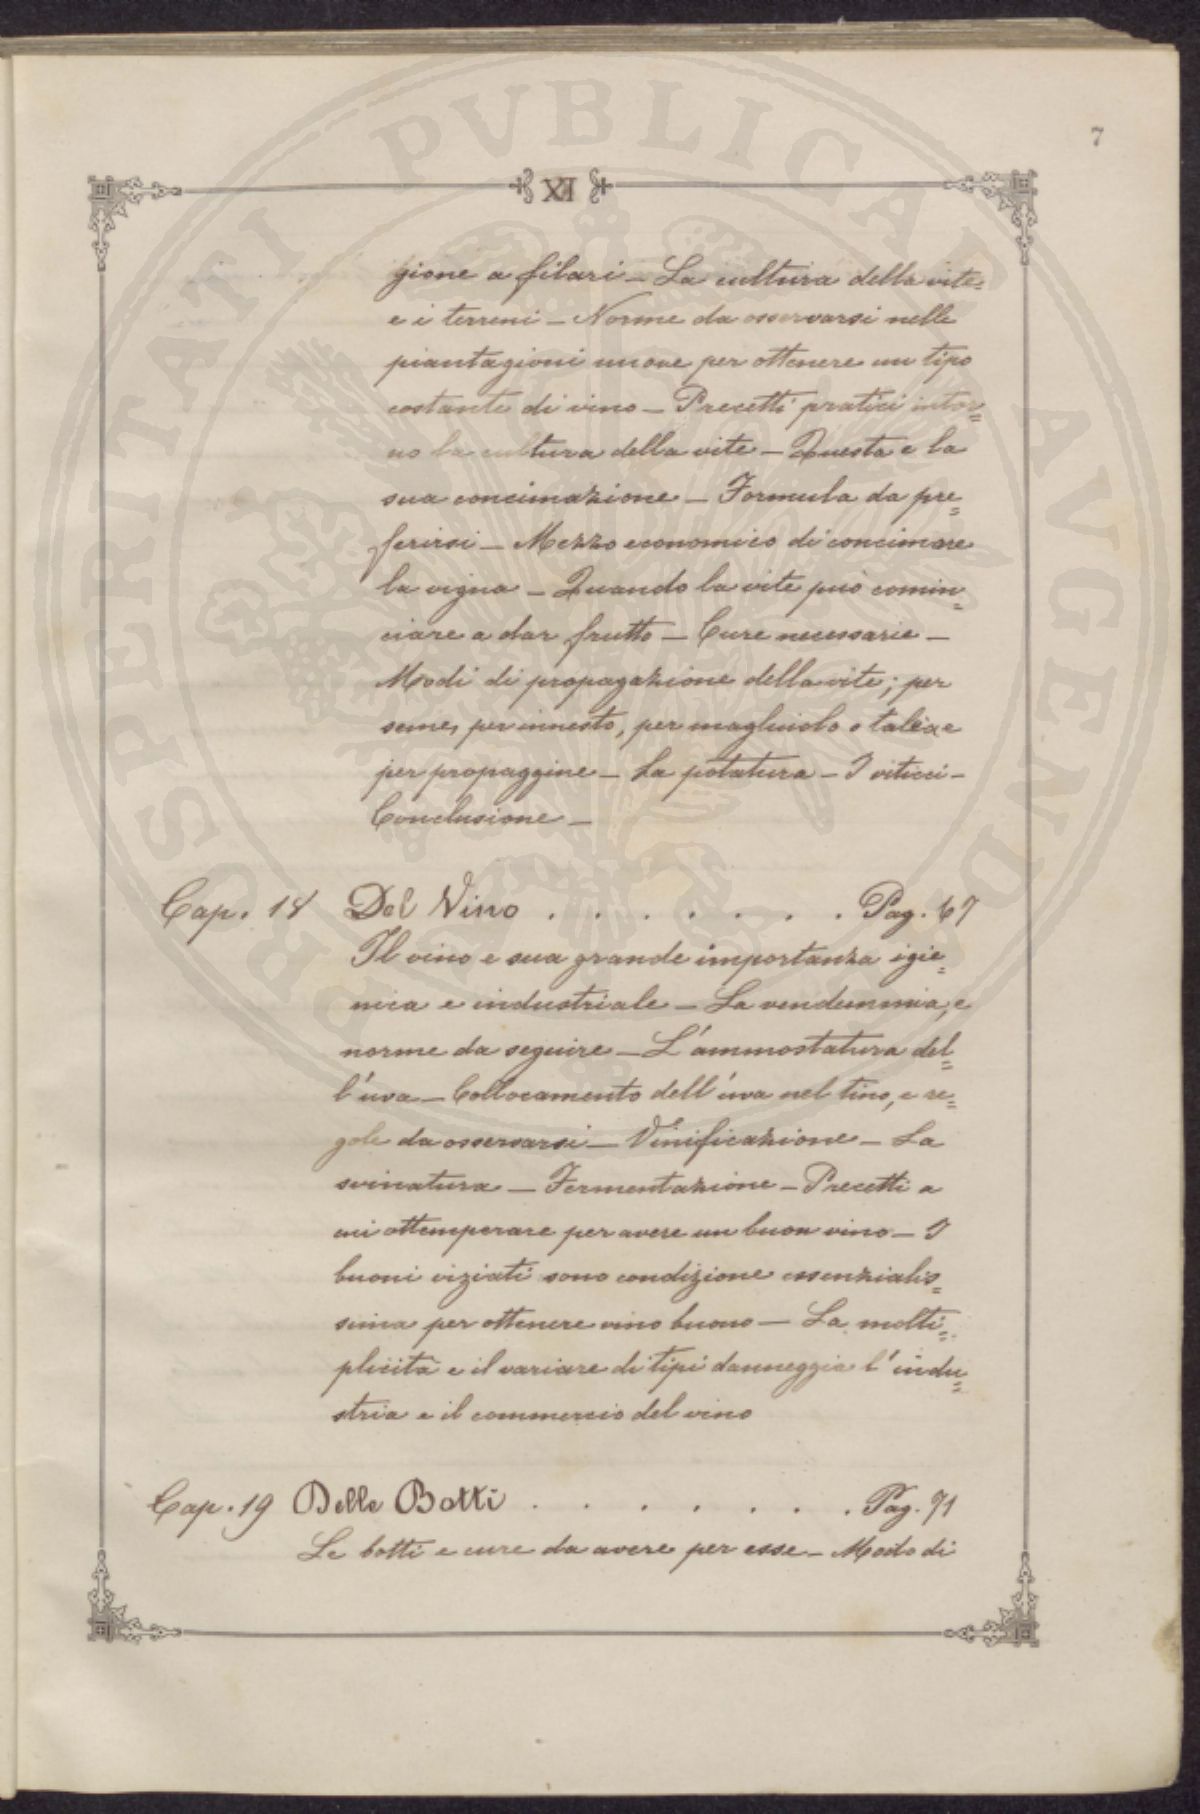 7
XI
gione a filari — La cultura della vite
e i terreni — Norme da osservarsi nelle
piantagioni nuove per ottenere un tipo
costante di vino — Precetti pratici intor=
no la cultura della vite — Questa e la
sua concimazione — Formula da pre=
ferirsi — Mezzo economico di concimare
la vigna — Quando la vite può comin=
ciare a dar frutto — Cure necessarie —
Modi di propagazione della vite; per
seme, per innesto, per magliuolo o talea e
per propaggine — La potatura — I viticci —
Conclusione —
Cap. 18 Del Vino . . . . . . . Pag. 67
Il vino e sua grande importanza igie=
nica e industriale — La vendemmia, e
norme da seguire — L'ammostatura del=
l'uva — Collocamento dell'uva nel tino, e re=
gole da osservarsi — Vinificazione — La
svinatura — Fermentazione — Precetti a
cui ottemperare per avere un buon vino — I
buoni viziati sono condizione essenzialis=
sima per ottenere vino buono — La molti=
plicità e il variare di tipi danneggia l'indu=
stria e il commercio del vino
Cap. 19 Delle Botti . . . . . . . Pag. 71
Le botti e cure da avere per esse — Modo di
PROSPERITATI PVBLICAE AVGENDAE